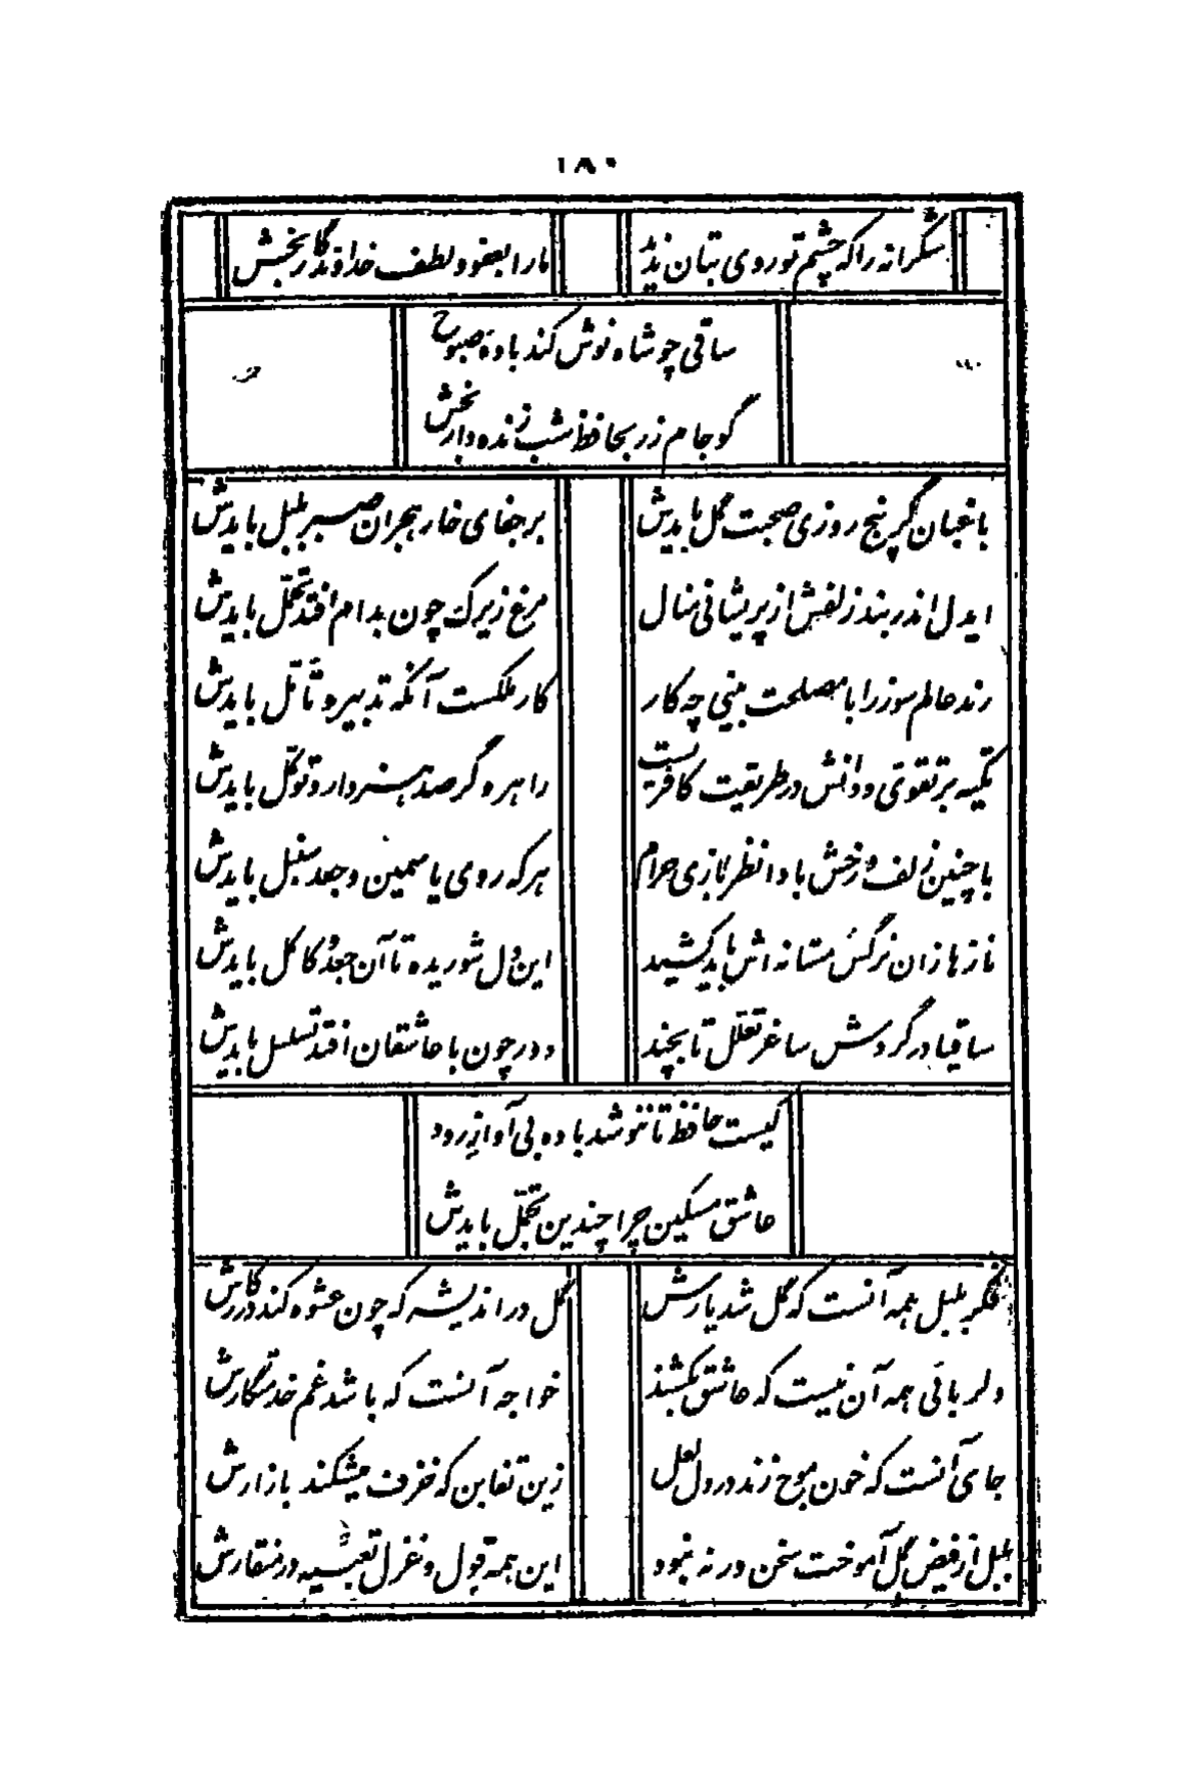 ۱۸۰
شکرانه را که چشم تو روی بتان ندید
ما را بعفو و لطف خداوندگار بخش
ساقی چو شاه نوش کند بادهٔ صبوح
گو جام زر بحافظ شب زنده دار بخش
باغبان گر پنج روزی صحبت گل بایدش
بر جفای خار هجران صبر بلبل بایدش
ایدل اندر بند زلفش از پریشانی منال
مرغ زیرک چون بدام افتد تحمّل بایدش
رند عالم سوز را با مصلحت بینی چه کار
کار ملکست آنکه تدبیر و تأمّل بایدش
تکیه بر تقوی و دانش در طریقت کافریست
راهرو گر صد هنر دارد توکّل بایدش
با چنین زلف و رخش بادا نظر بازی حرام
هر که روی یاسمین و جعد سنبل بایدش
نازها زان نرگس مستانه اش باید کشید
این دل شوریده تا آن جعد کاکل بایدش
ساقیا در گردش ساغر تعلّل تا بچند
دور چون با عاشقان افتد تسلسل بایدش
کیست حافظ تا ننوشد باده بی آواز رود
عاشق مسکین چرا چندین تجمّل بایدش
فکر بلبل همه آنست که گل شد یارش
گل در اندیشه که چون عشوه کند در کارش
دلربائی همه آن نیست که عاشق بکشند
خواجه آنست که باشد غم خدمتگارش
جای آنست که خون موج زند در دل لعل
زین تغابن که خزف میشکند بازارش
بلبل از فیض گل آموخت سخن ور نه نبود
این همه قول و غزل تعبیه در منقارش